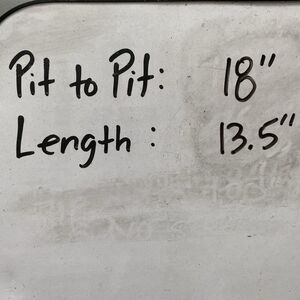 Pit to Pit: 18"
Length : 13.5"